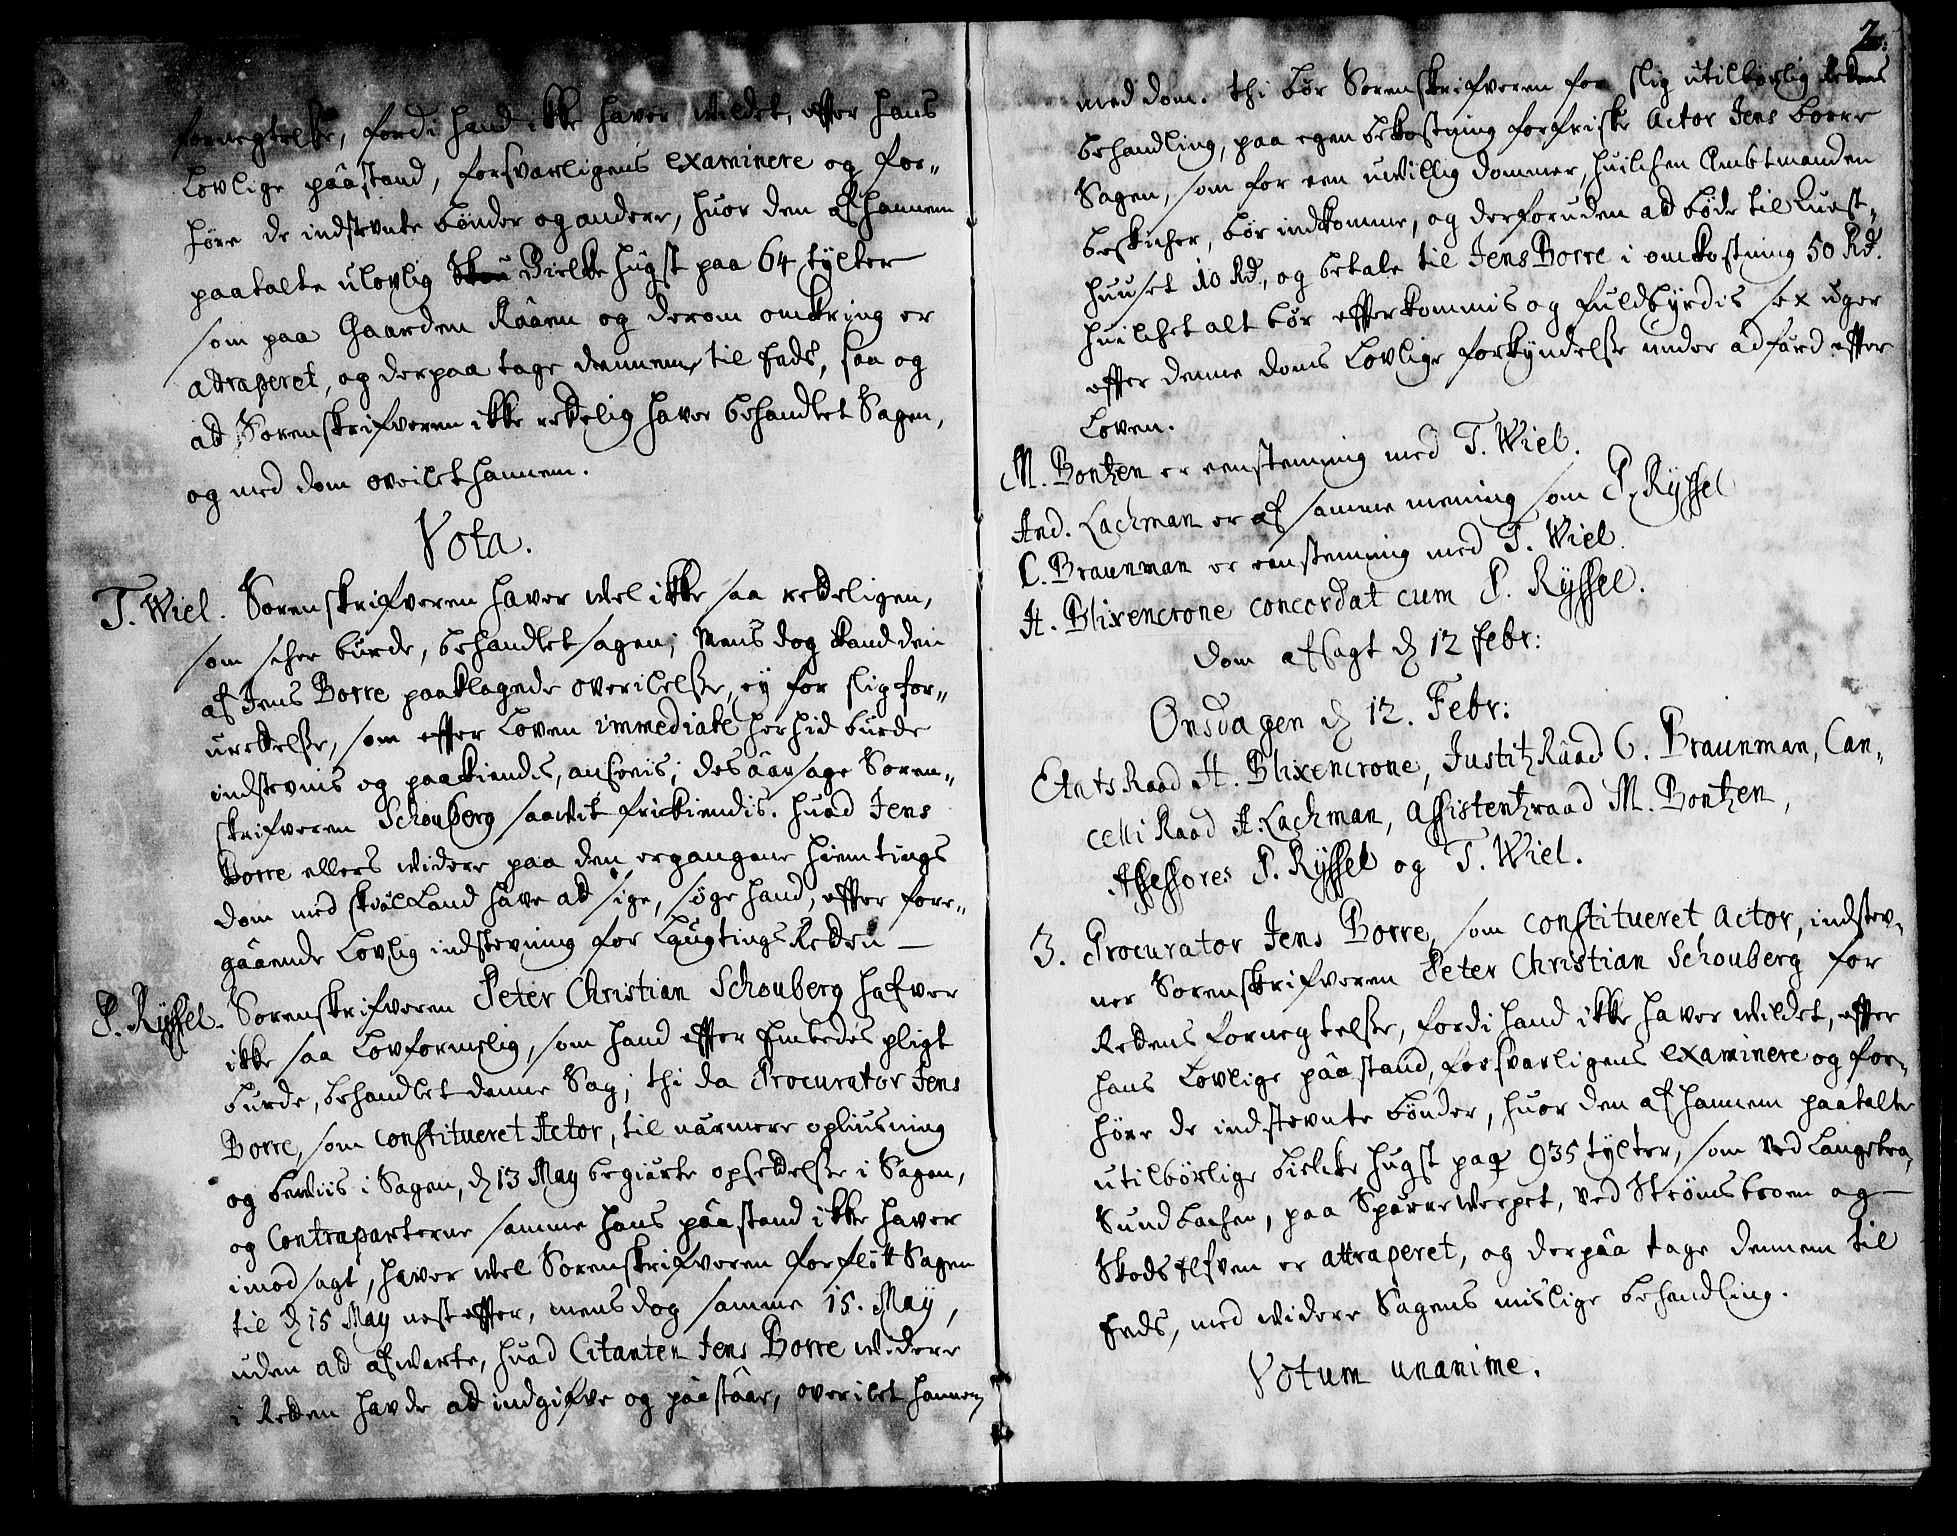 fornegtelse, fordi hand ikke haver wildet, effter hans
Lovlige påastand, forsvarligens examinere og for„
höre de indstevnte bönder og andere, huor den af hannem
paatalte ulovlig Bielke hugst paa 64 tylter
som paa Gaarden Råaen og derom omkring er
attraperet, og derpaa tage dennem til Eeds, saa og
at Sorenskrifveren ikke redelig haver behandlet Sagen,
og med dom overilet hannem.
Vota.
T. Wiel. Sorenskrifveren haver wel ikke saa redeligen,
som schee burde, behandlet sagen; Mens dog kand den
af Jens Borre paaklagede overilelse, ey for slig for„
urettelse, som effter Loven immediate herhid burde
indstevnis og paakiendis, ansees; des åarsage Soren„
skrifveren Schouberg saavit frikiendis. Huad Jens
Borre ellers widere paa den ergangene hiemtings
dom med skiäl kand have ad sige, söge hand, effter fore„
gåaende Lovlig indstevning for Laugtings Retten —
P. Ryssel. Sorenskrifveren Peter Christian Schouberg hafver
ikke saa Lovformelig, som hand effter Embedes pligt
burde, behandlet denne Sag; thi da Procurator Jens
Borre, som Constitueret Actor, til närmere opliusning
og bewiis i Sagen, d 13 May begiärte opsettelse i Sagen,
og Contraparterne samme hans påastand ikke haver
imod sagt, haver wel Sorenskrifveren forflött Sagen
til d 15 May nest effter, mens dog samme 15. May,
uden ad afwarte, huad Citanten Jens Borre widere
i Retten havde ad indgifve og påaståae, overilet hannem
2.
med dom. thi bör Sorenskrifveren for slig utilbörlig Rettens
behandling, paa egen bekostning forfriske Actor Jens Borre
Sagen, som for een uwillig dommer, huilchen Ambtmanden
beskicher, bör indkomme, og derforuden at böde til Qvest„
huuset 10 Rd, og betale til Jens Borre i omkostning 50 Rd.
huilchet alt bör effterkommis og fuldbyrdis sex uger
effter denne doms Lovlige forkyndelse under adfärd effter
Loven.
M. Bontzen er eenstemmig med T. Wiel.
And. Lachman er af samme mening som P. Ryssel
C. Braunman er eenstemmig med T. Wiel.
A. Blixencrone concordat cum P. Ryssel.
Dom afsagt d 12 febr:
Onsdagen d 12. Febr:
Etats Raad A. Blixencrone, Justitz Råad C. Braunman, Can„
celli Raad A. Lachman, Assistentzraad M. Bontzen,
Assessores P. Ryssel og T. Wiel.
3. Procurator Jens Borre, som Constitueret Actor, indstev„
ner Sorenskrifveren Peter Christian Schouberg for
Rettens fornegtelse, fordi hand ikke haver wildet, effter
hans Lovlige påastand, forsvarligens examinere og for„
höre de indstevnte bönder, huor den af hannem paatalte
utilbörlige bielcke hugst paa 935 tylter, som ved Langebroe,
Sundbachen, paa Spärrewerpet, ved Strömsbroen og
Skods Elfven er attraperet, og derpåa tage dennem til
Eeds, med widere Sagens mislige behandling.
Votum unanime.